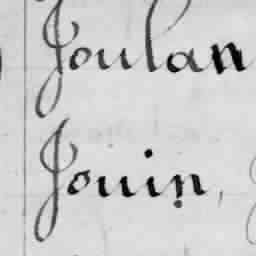 Joulan
Jouin,